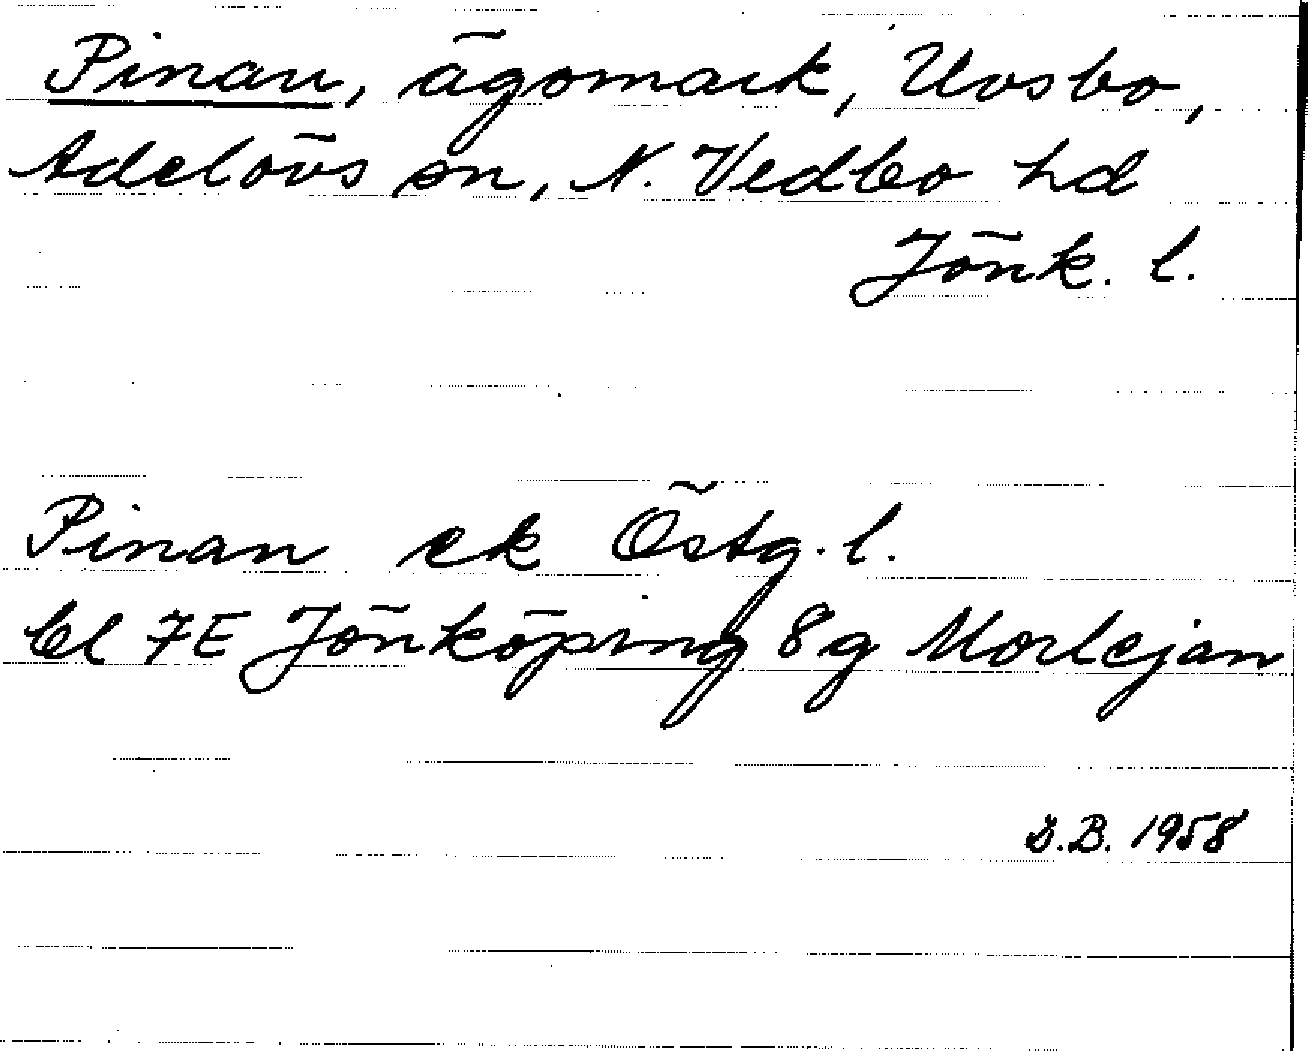 Pinan, ägomark, Uvsbo,
Adelövs sn, N. Vedbo hd
Jönk. l.
Pinan ek Östg. l.
bl 7E Jönköping 8g Morlejan
D.B. 1958